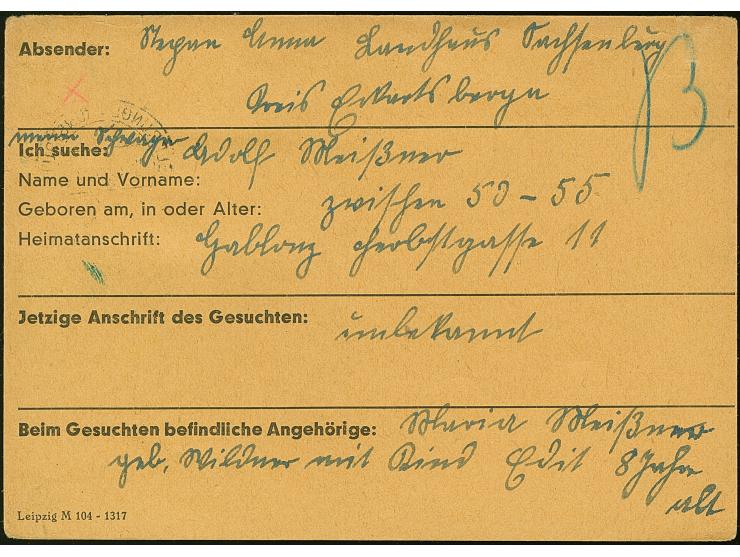 Absender: Stepan Anna Landhaus Sachsenburg
Kreis Eckartsberga
B
meinen Schwager
Ich suche: Adolf Meißner
Name und Vorname:
Geboren am, in oder Alter: zwischen 50 – 55
Heimatanschrift: Gablonz Herbstgasse 11
Jetzige Anschrift des Gesuchten: unbekannt
Beim Gesuchten befindliche Angehörige: Maria Meißner
geb. Wildner mit Kind Edit 8 Jahre
alt
Leipzig M 104 - 1317